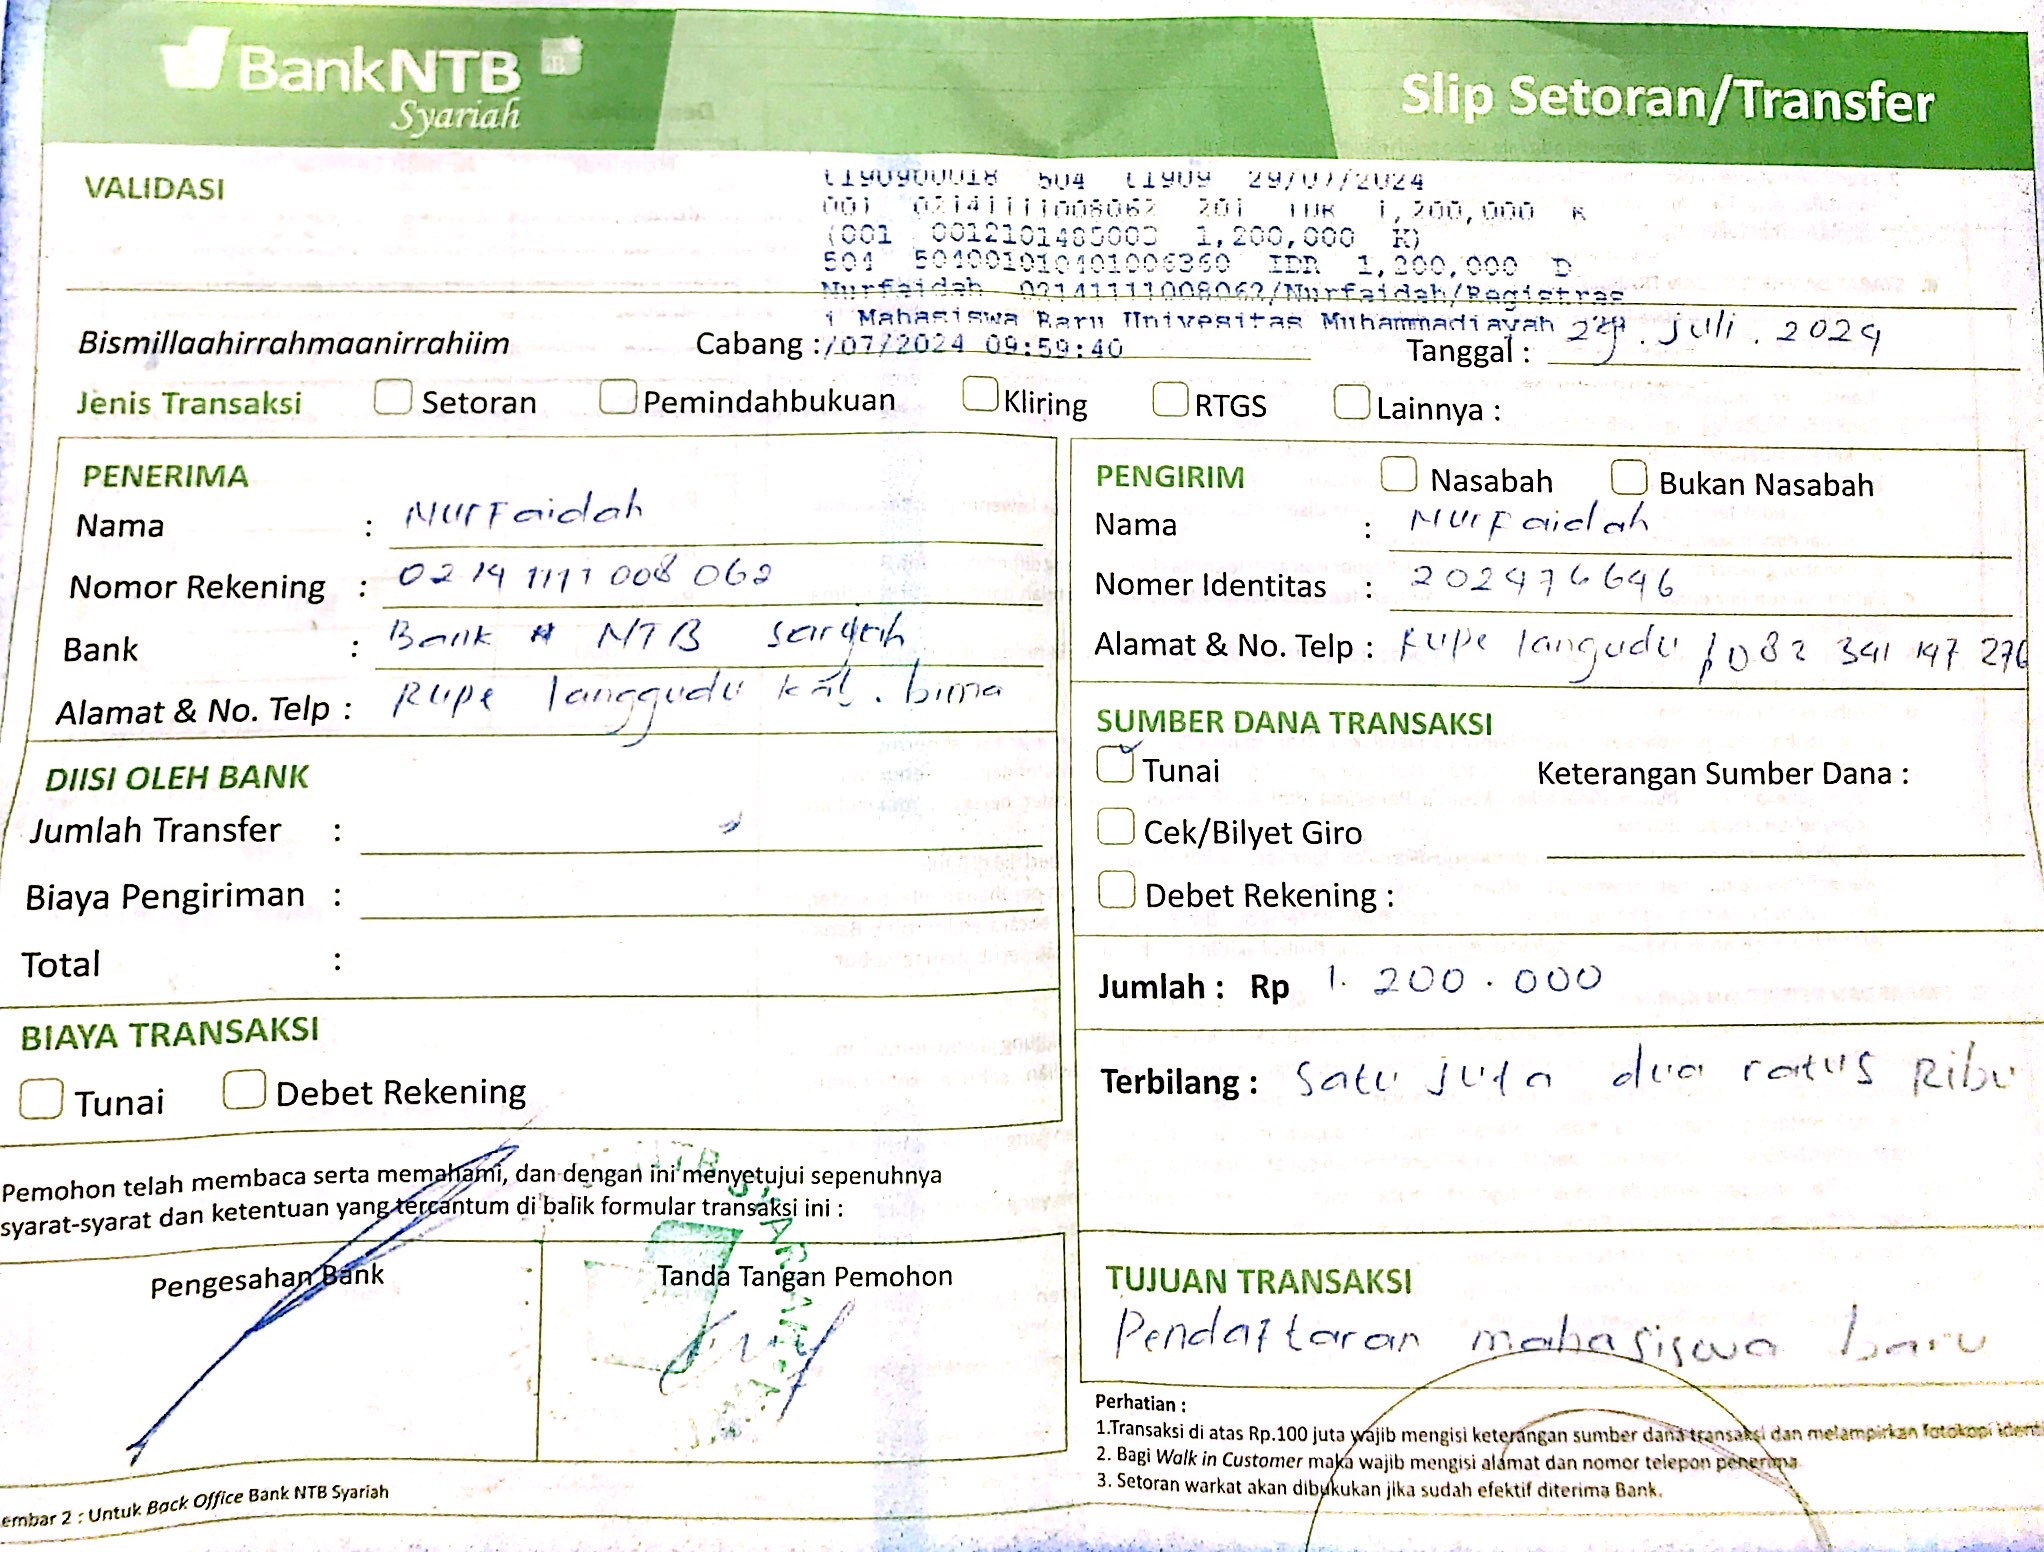 BankNTB
Syariah
Slip Setoran/Transfer
VALIDASI
504 29/07/2024
001 02141111008062 201 IDR 1,200,000 K
(001 0012101485003 1,200,000 K)
504 504001010401006360 IDR 1,200,000 D
Nurfaidah 02141111008062/Nurfaidah/Registras
i Mahasiswa Baru Univesitas Muhammadiayah
Bismillaahirrahmaanirrahiim
Cabang : /07/2024 09:59:40
Tanggal : 29. juli. 2024
Jenis Transaksi Setoran Pemindahbukuan Kliring RTGS Lainnya :
PENERIMA
Nama : NurFaidah
Nomor Rekening : 0214 1111 008 062
Bank : Bank NTB
Alamat & No. Telp : Rupe langgudu kab. bima
DIISI OLEH BANK
Jumlah Transfer :
Biaya Pengiriman :
Total :
BIAYA TRANSAKSI
Tunai Debet Rekening
Pemohon telah membaca serta memahami, dan dengan ini menyetujui sepenuhnya
syarat-syarat dan ketentuan yang tercantum di balik formular transaksi ini :
Pengesahan Bank
Tanda Tangan Pemohon
embar 2 : Untuk Back Office Bank NTB Syariah
PENGIRIM Nasabah Bukan Nasabah
Nama : NurFaidah
Nomer Identitas : 202476646
Alamat & No. Telp : Rupe langudu / 082 341 147 276
SUMBER DANA TRANSAKSI
Tunai Keterangan Sumber Dana :
Cek/Bilyet Giro
Debet Rekening :
Jumlah : Rp 1. 200 . 000
Terbilang : Satu juta dua ratus Ribu
TUJUAN TRANSAKSI
Pendaftaran mahasiswa baru
Perhatian :
1.Transaksi di atas Rp.100 juta wajib mengisi keterangan sumber dana transaksi dan melampirkan fotokopi identi
2. Bagi Walk in Customer maka wajib mengisi alamat dan nomor telepon penerima
3. Setoran warkat akan dibukukan jika sudah efektif diterima Bank.